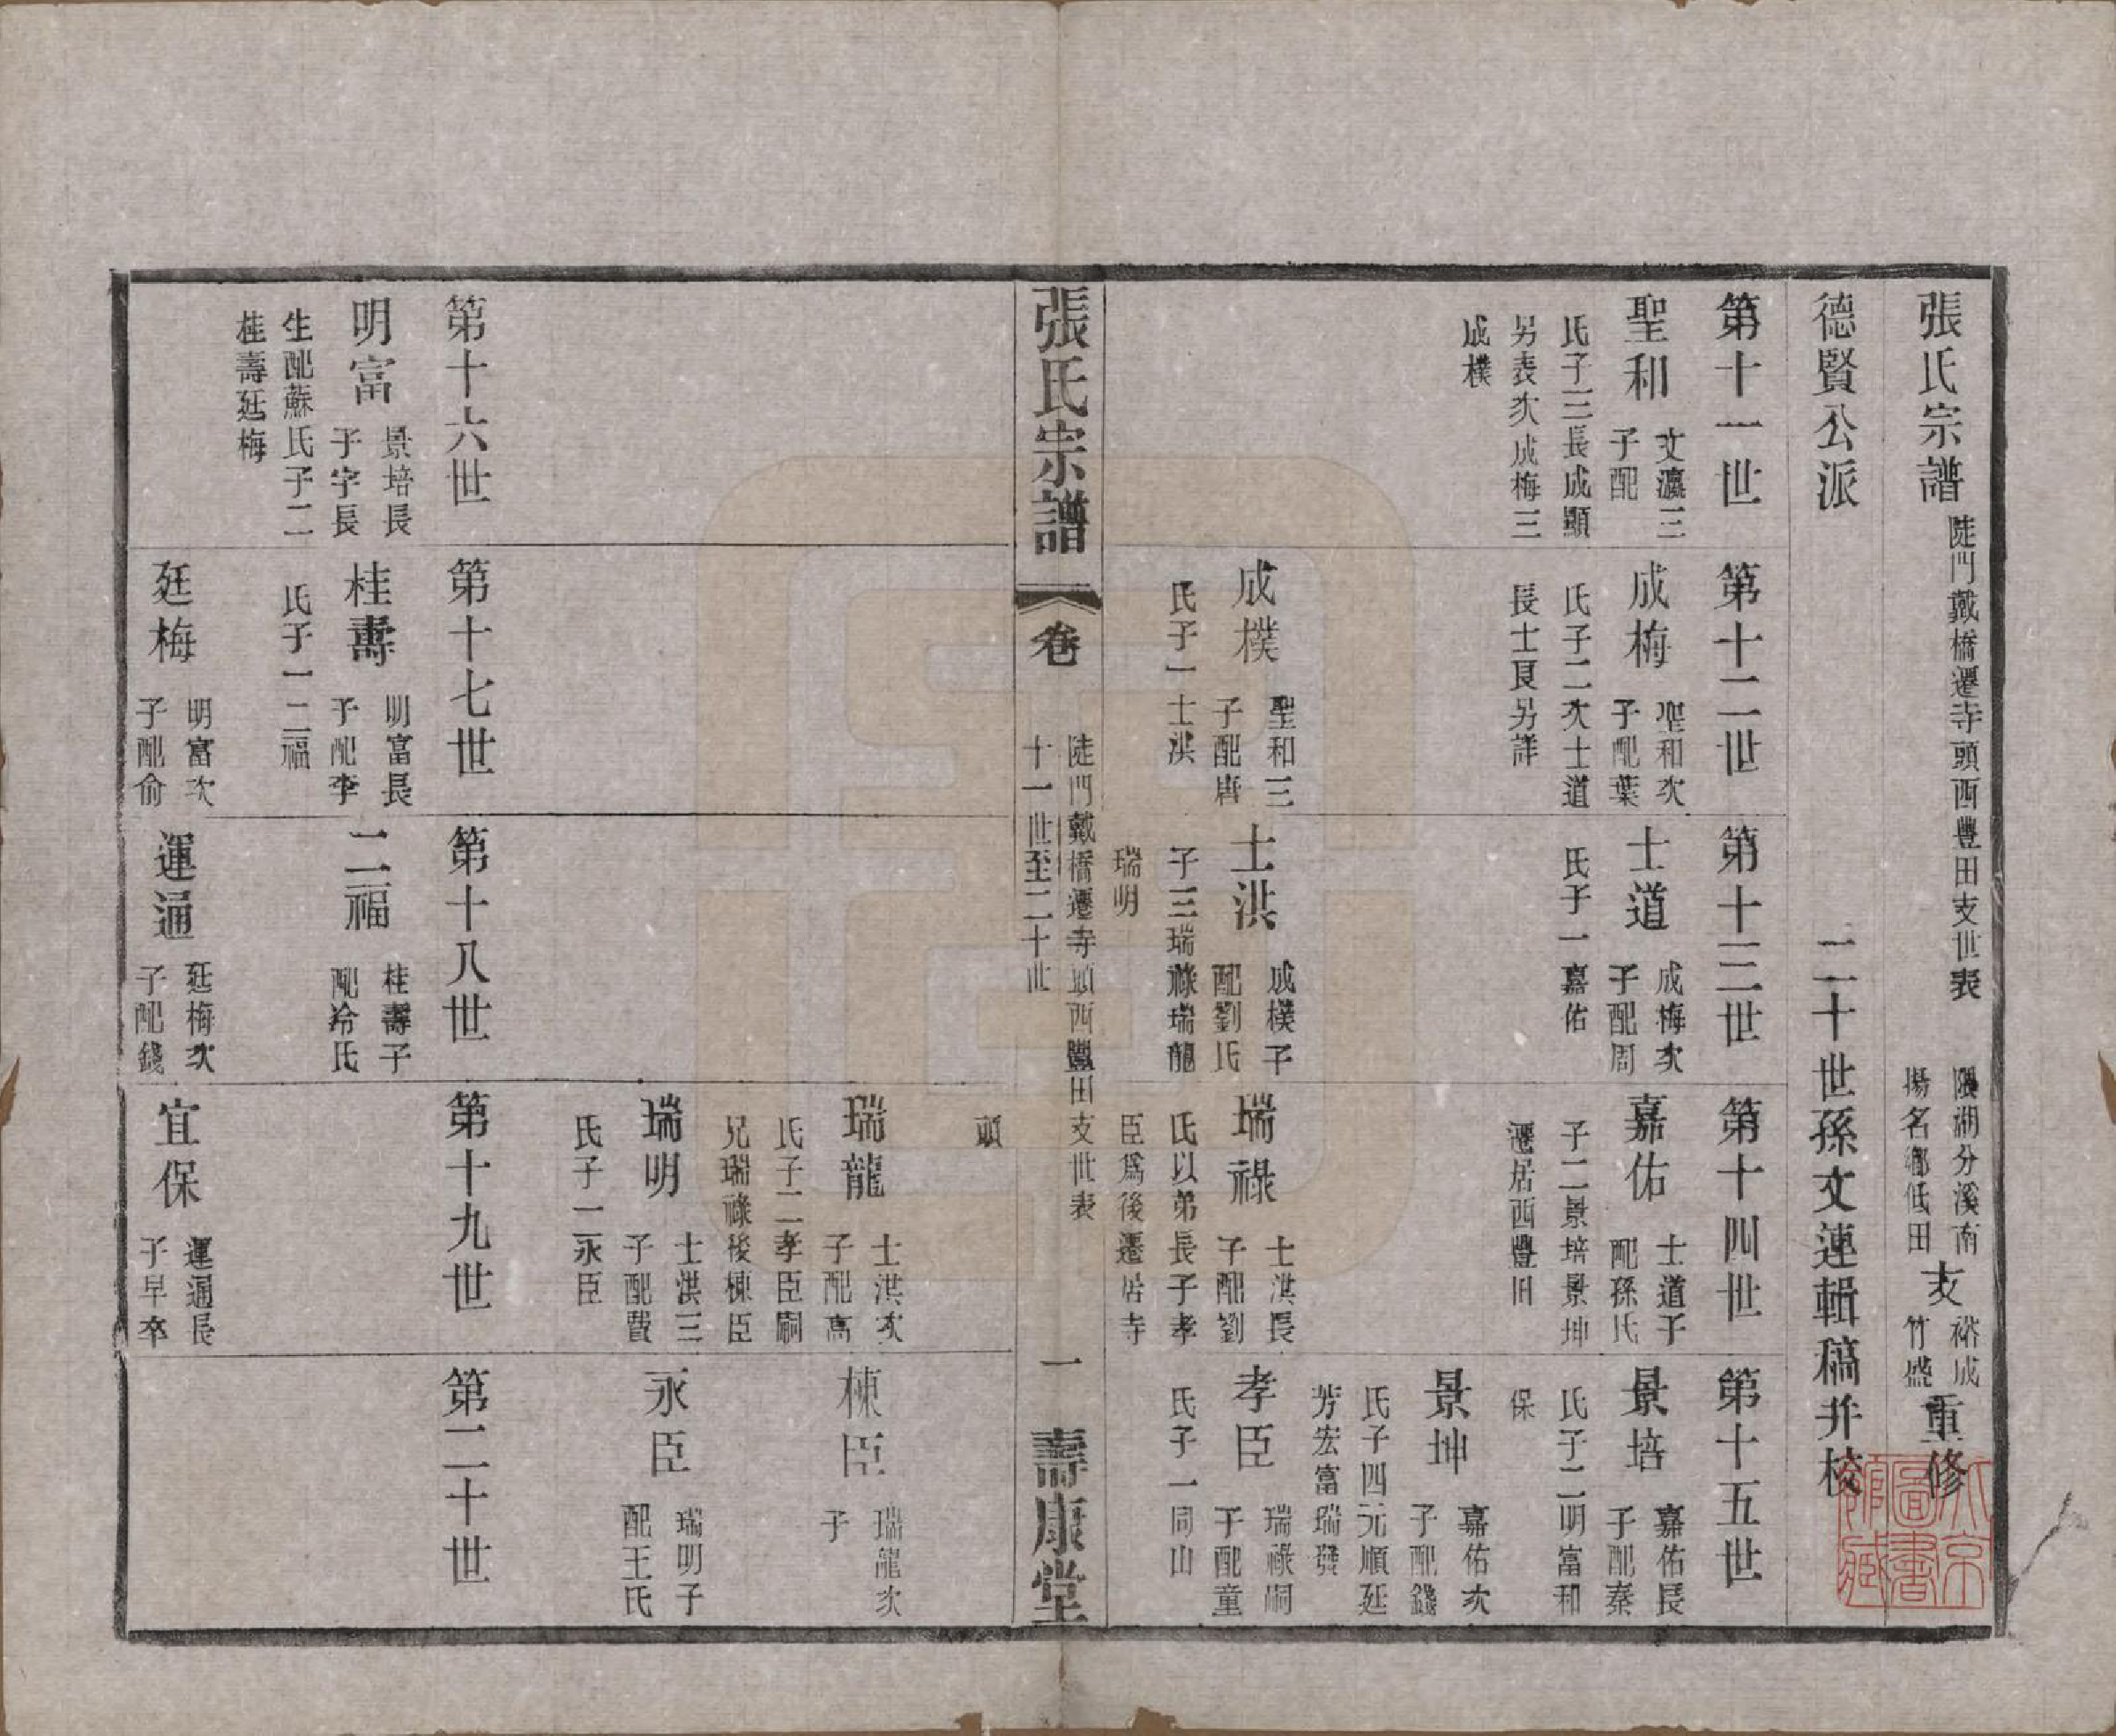 張氏宗譜
陡門戴橋遷寺頭西豐田支世表
隱湖分溪南
揚名鄉低田
支
裕成
竹盛
重修
德賢公派
二十世孫文蓮輯稿并校
第十一世
聖和
文瀛三
子配
氏子三長成顯
另表次成梅三
成樸
第十二世
成梅
聖和次
子配葉
氏子二次士道
長士良另詳
成樸
聖和三
子配唐
氏子一士洪
第十三世
士道
成梅次
子配周
氏子一嘉佑
士洪
成樸子
配劉氏
子三瑞祿瑞龍
瑞明
第十四世
嘉佑
士道子
配孫氏
子二景培景坤
遷居西豐田
瑞祿
士洪長
子配劉
氏以弟長子孝
臣爲後遷居寺
頭
瑞龍
士洪次
子配高
氏子二孝臣嗣
兄瑞祿後棟臣
瑞明
士洪三
子配費
氏子一永臣
第十五世
景培
嘉佑長
子配秦
氏子二明富和
保
景坤
嘉佑次
子配錢
氏子四元順廷
芳宏富瑞發
孝臣
瑞祿嗣
子配童
氏子一同山
棟臣
瑞龍次
子
永臣
瑞明子
配王氏
張氏宗譜
卷
陡門戴橋遷寺頭西豐田支世表
十一世至二十世
一
壽康堂
第十六世
明富
景培長
子字長
生配蘇氏子二
桂壽廷梅
第十七世
桂壽
明富長
子配李
氏子一二福
廷梅
明富次
子配俞
第十八世
二福
桂壽子
配冷氏
運通
廷梅次
子配錢
第十九世
宜保
運通長
子早卒
第二十世
北京
圖書
館藏